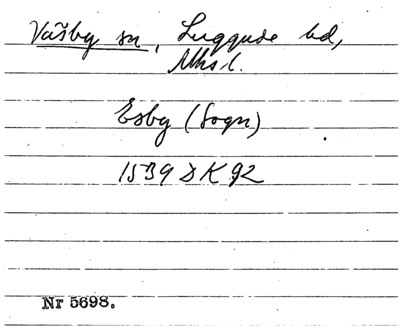 Väsby sn, Luggude hd,
Mhs l.
Esby (Sogn)
1539 DK 92
Nr 5698.